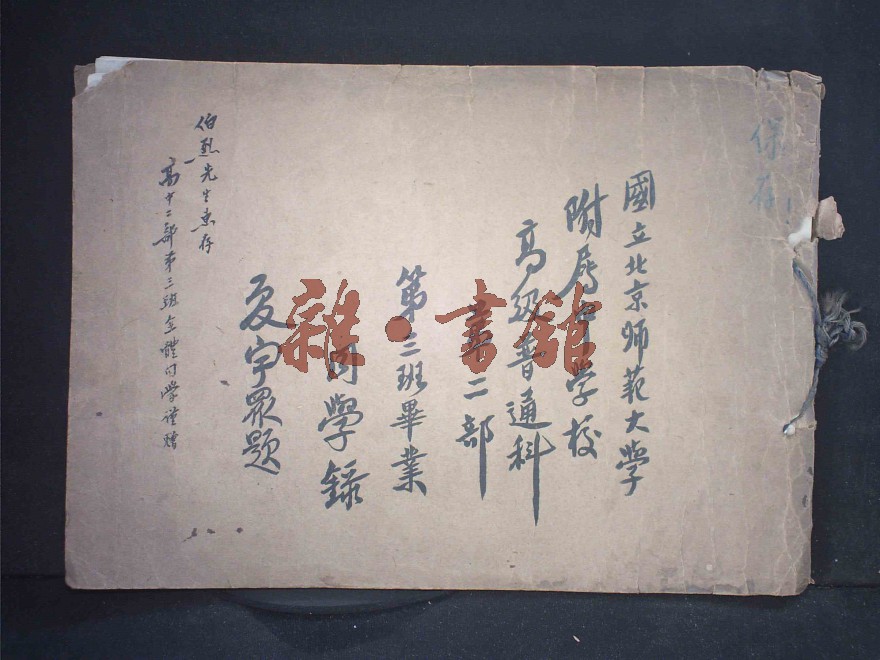 保存
國立北京师範大學
附屬中學校
高级普通科
第二部
第三班畢業
同學錄
夏宇眾题
伯烈先生惠存
高中二部第三班全體同學谨赠
雜·書館